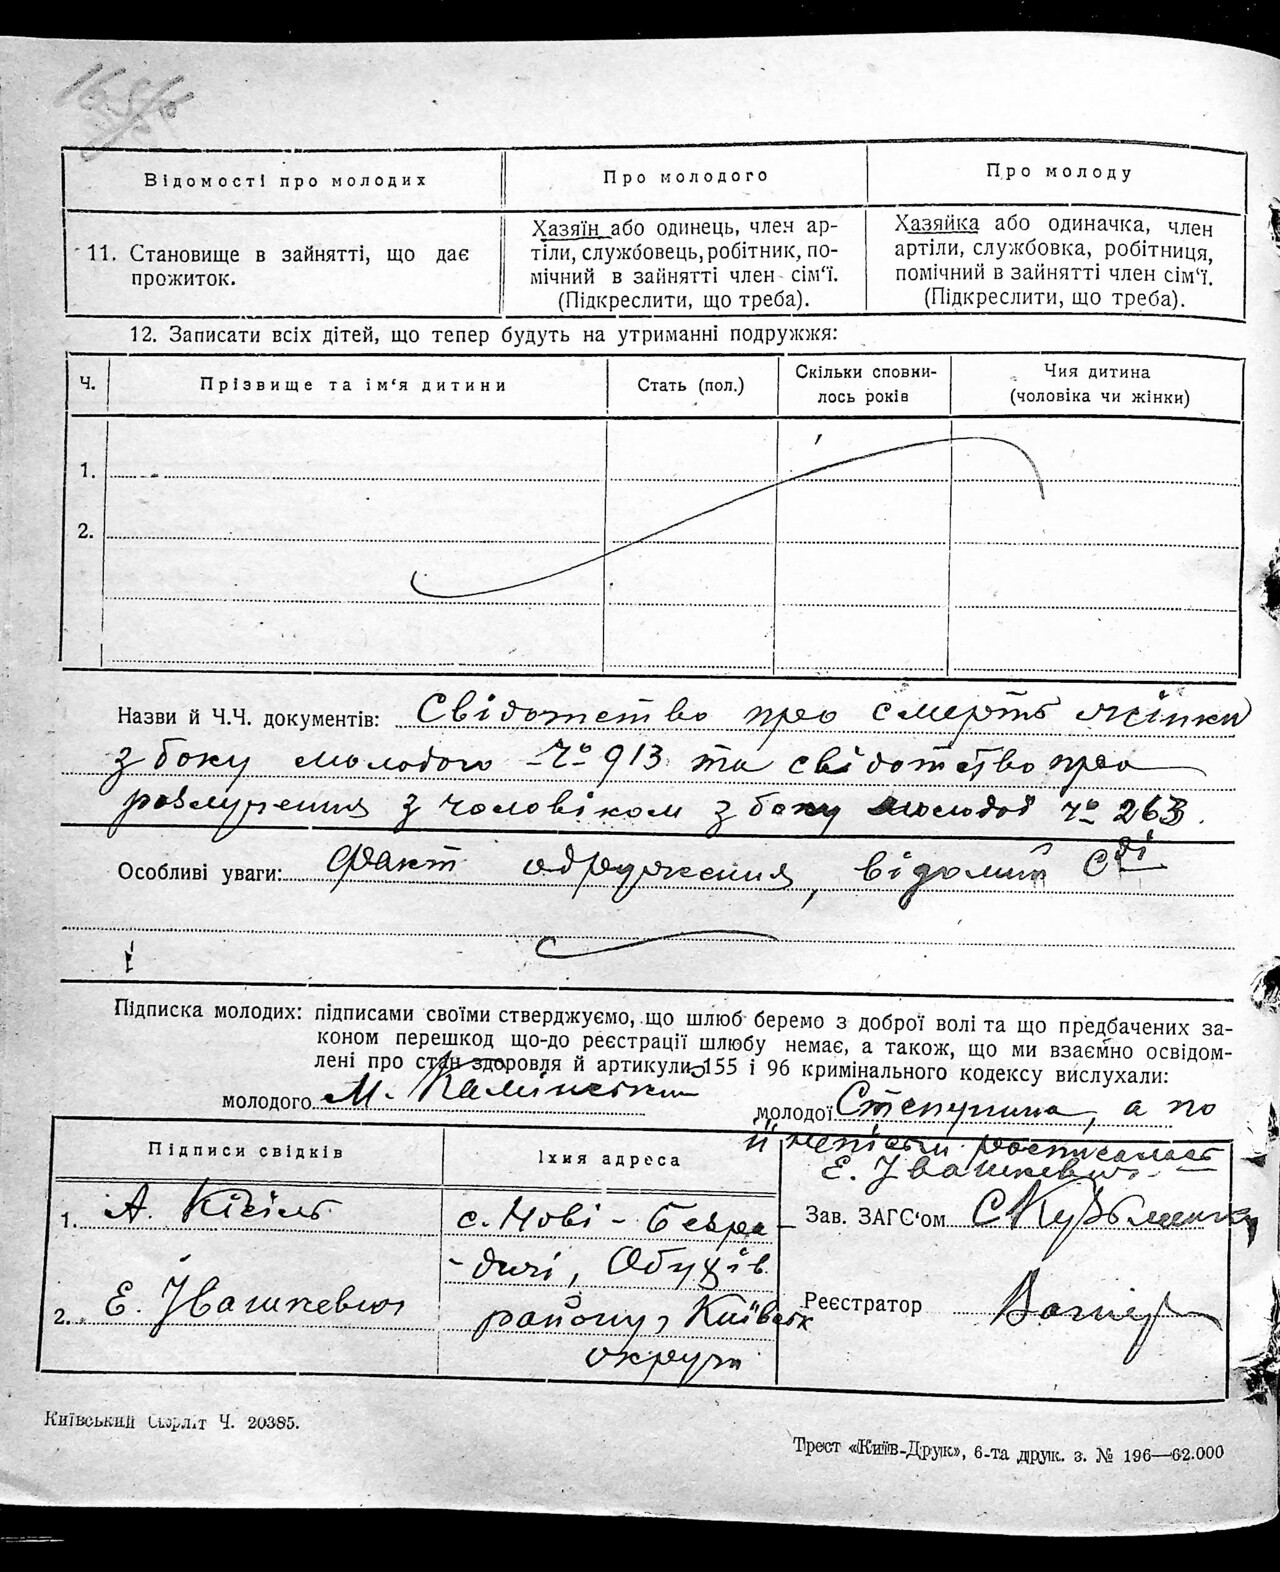 Відомості про молодих
Про молодого
Про молоду
11. Становище в зайнятті, що дає
прожиток.
Хазяїн або одинець, член ар-
тіли, службовець, робітник, по-
мічний в зайнятті член сім'ї.
(Підкреслити, що треба).
Хазяйка або одиначка, член
артіли, службовка, робітниця,
помічний в зайнятті член сім'ї.
(Підкреслити, що треба).
12. Записати всіх дітей, що тепер будуть на утриманні подружжя:
Ч.
Прізвище та ім'я дитини
Стать (пол.)
Скільки сповни-
лось років
Чия дитина
(чоловіка чи жінки)
1.
2.
Назви й Ч.Ч. документів: Свідотство про смерть жінки
з боку молодого № 913 та свідотство про
розлучення з чоловіком з боку молодої № 263.
Особливі уваги: Факт одруження, відомий
Підписка молодих: підписами своїми стверджуємо, що шлюб беремо з доброї волі та що предбачених за-
коном перешкод що-до реєстрації шлюбу немає, а також, що ми взаємно освідом-
лені про стан здоровля й артикули 155 і 96 кримінального кодексу вислухали:
молодого М. Камінський
молодої Степунина, а по
її неписьм. росписалась
Е. Івашкевич
Підписи свідків
Їхня адреса
1. А. Кісіль
с. Нові - Безра-
-дичі, Обухів.
2. Е. Івашкевич
району, Київськ
округи
Зав. ЗАГС'ом С Кузьменко
Реєстратор
Київський Окрліт Ч. 20385.
Трест «Київ-Друк», 6-та друк. з. № 196—62.000